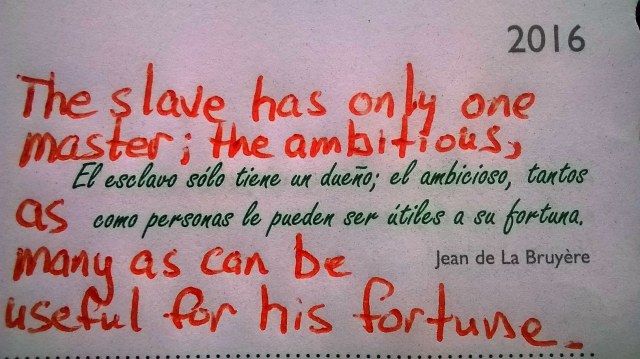 2016
The slave has only one
master; the ambitious,
El esclavo sólo tiene un dueño; el ambicioso, tantos
as
como personas le pueden ser útiles a su fortuna.
many as can be
Jean de La Bruyère
useful for his fortune.